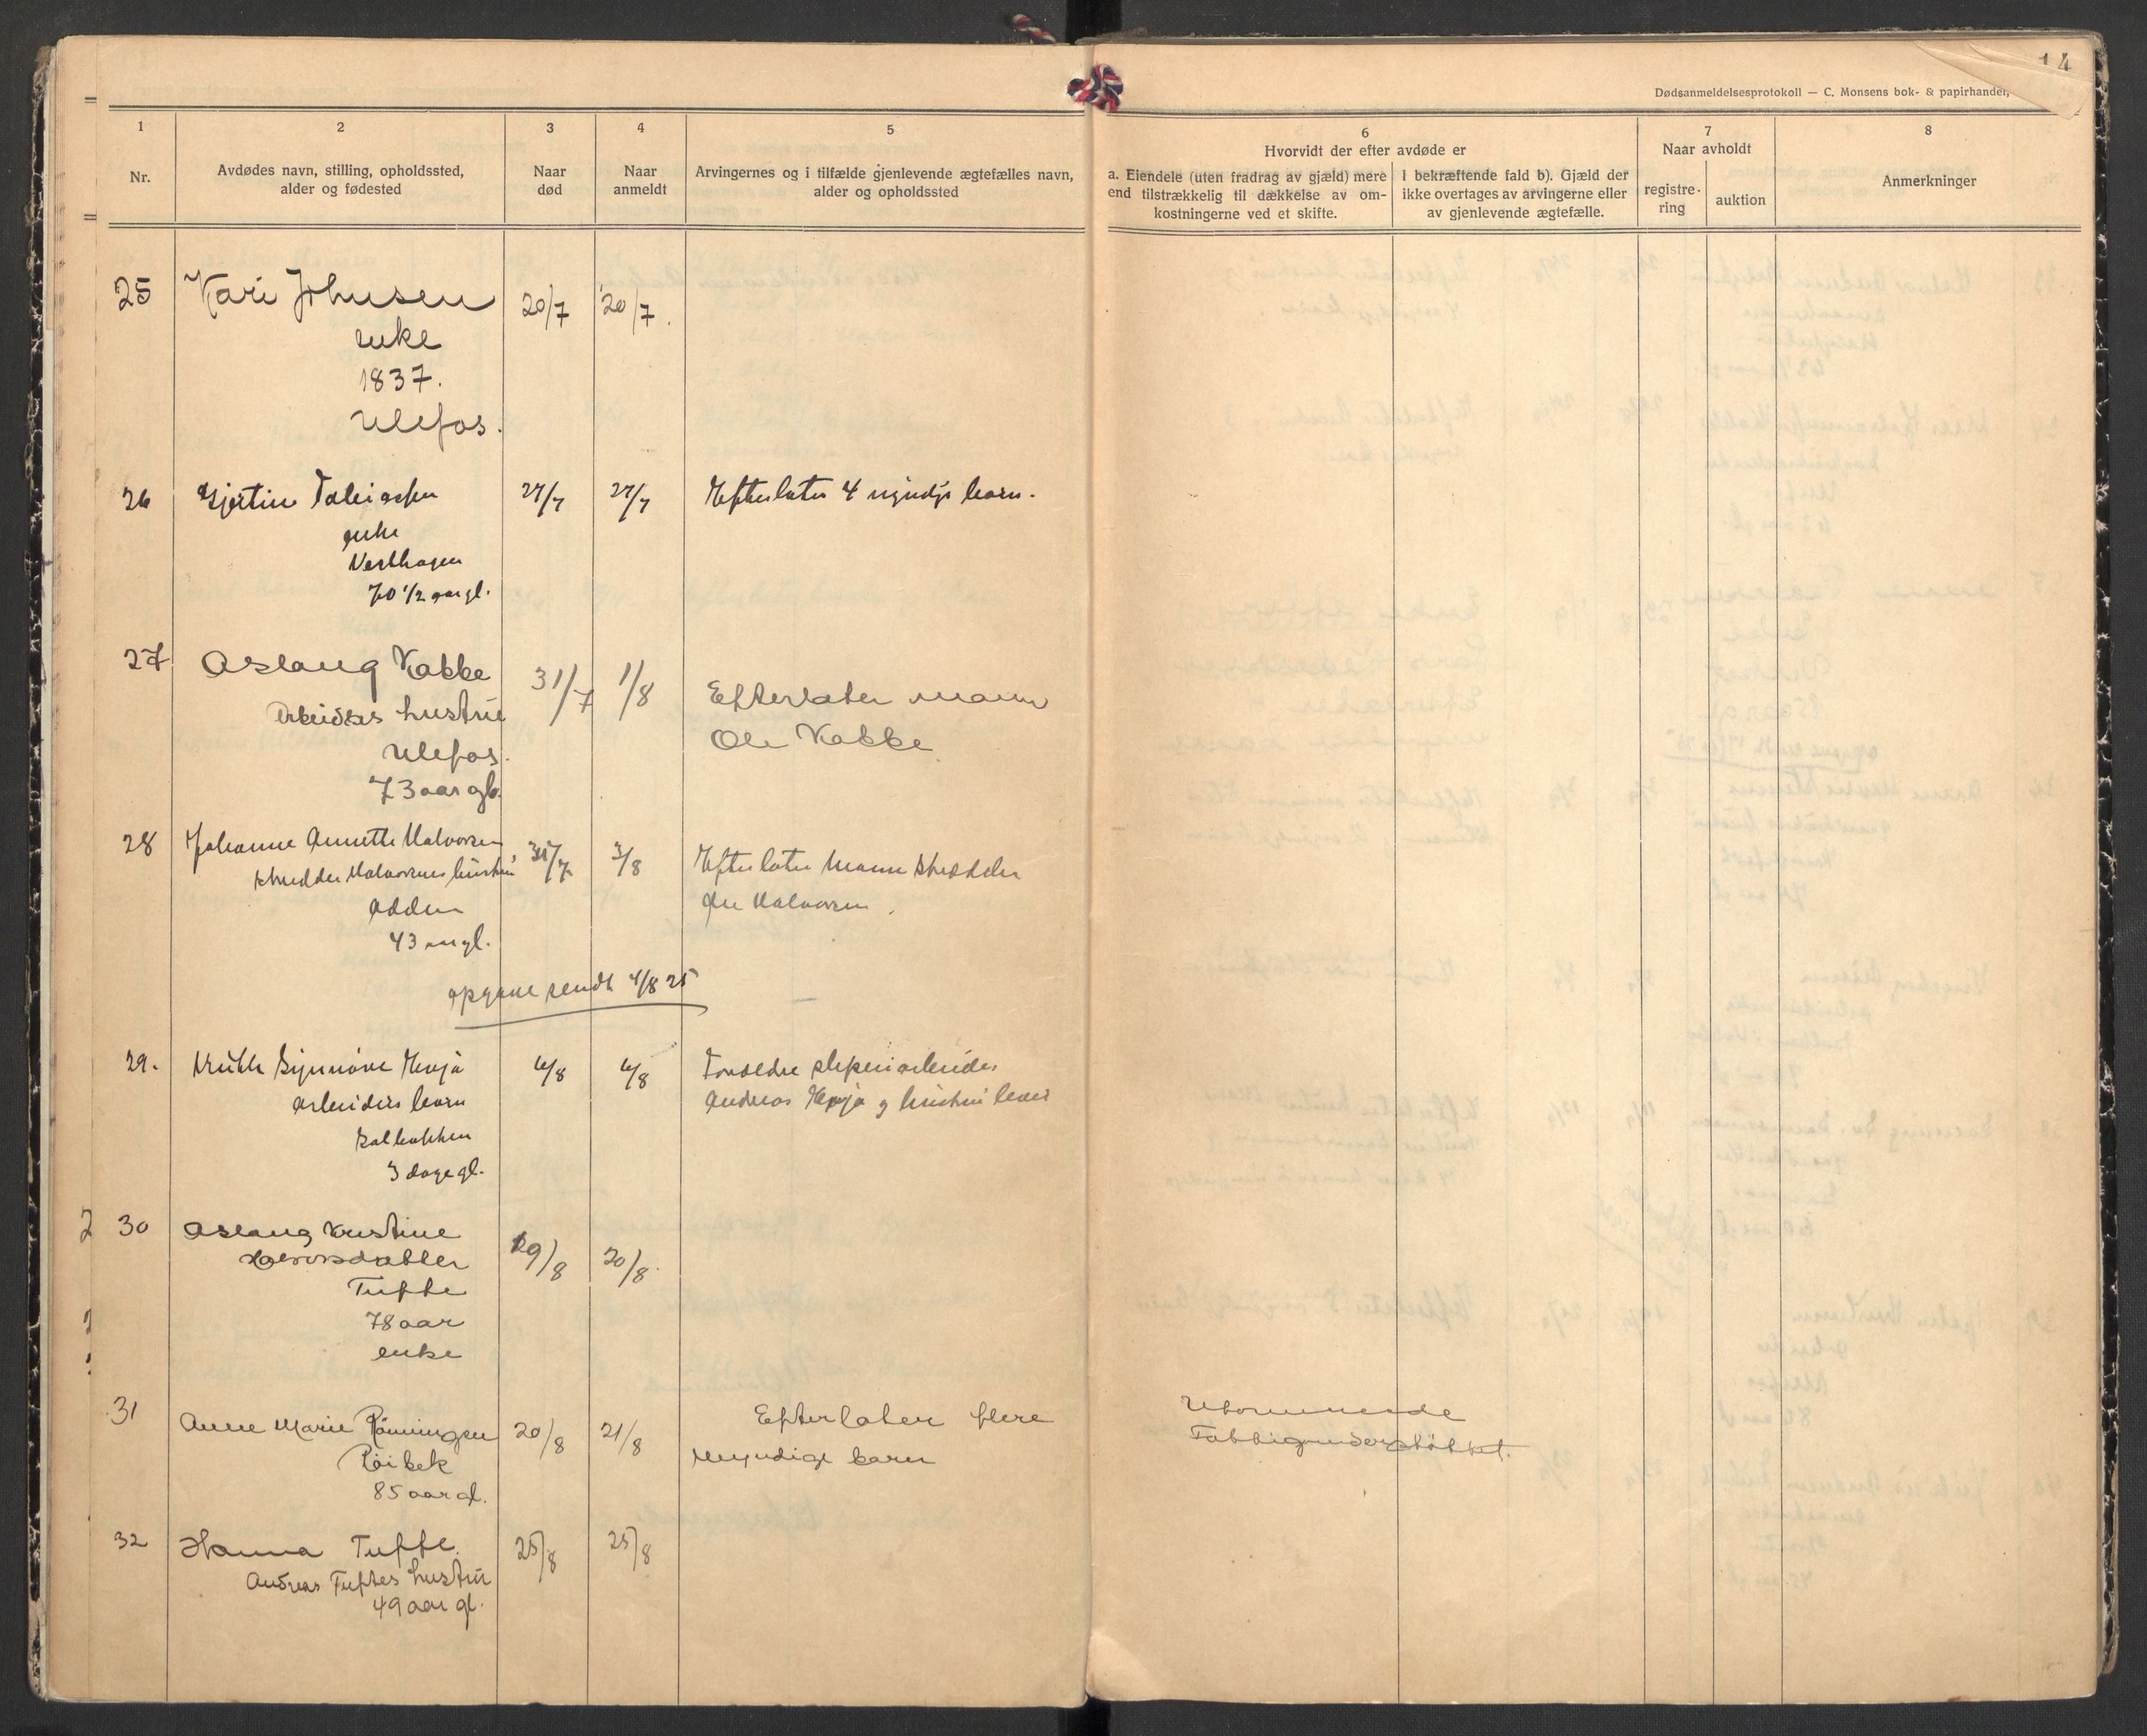 14
Dødsanmeldelsesprotokoll — C. Monsens bok- & papirhandel,
1
2
3
4
5
6
7
8
Nr.
Avdødes navn, stilling, opholdssted,
alder og fødested
Naar
død
Naar
anmeldt
Arvingernes og i tilfælde gjenlevende ægtefælles navn,
alder og opholdssted
Hvorvidt der efter avdøde er
a. Eiendele (uten fradrag av gjæld) mere
end tilstrækkelig til dækkelse av om-
kostningerne ved et skifte.
I bekræftende fald b). Gjæld der
ikke overtages av arvingerne eller
av gjenlevende ægtefælle.
Naar avholdt
registre-
ring
auktion
Anmerkninger
25 Kari Johnsen 20/7 20/7.
enke
1837.
Ulefos.
26 27/7 27/7 Efterlater 4 myndige barn.
enke
Vesthagen
70 1/2 aar gl.
27 Aslaug Kabbe 31/7 1/8 Efterlater mann
Arbeiders hustru Ole Kabbe
Ulefos.
73 aar gl.
28 Johanne Annette Halvorsen 31/7 3/8 Efterlater mann
Halvorsens hustru Ole Halvorsen.
Odden
43 aar gl.
opgave sendt 4/8 25
29. Synnøve 6/8 6/8 Foreldre sliperiarbeider
arbeiders barn Andreas og hustru lever
3 dage gl.
30 Aslaug Kristine 19/8 20/8.
Halvorsdatter
Tufte
78 aar
enke
31 Anne Marie Rønningen 20/8 21/8 Efterlater flere Utkommende
Röibek myndige barn Fattigunderstöttet.
85 aar gl.
32 Hanna Tufte. 25/8 25/8
Andreas Tuftes hustru
49 aar gl.